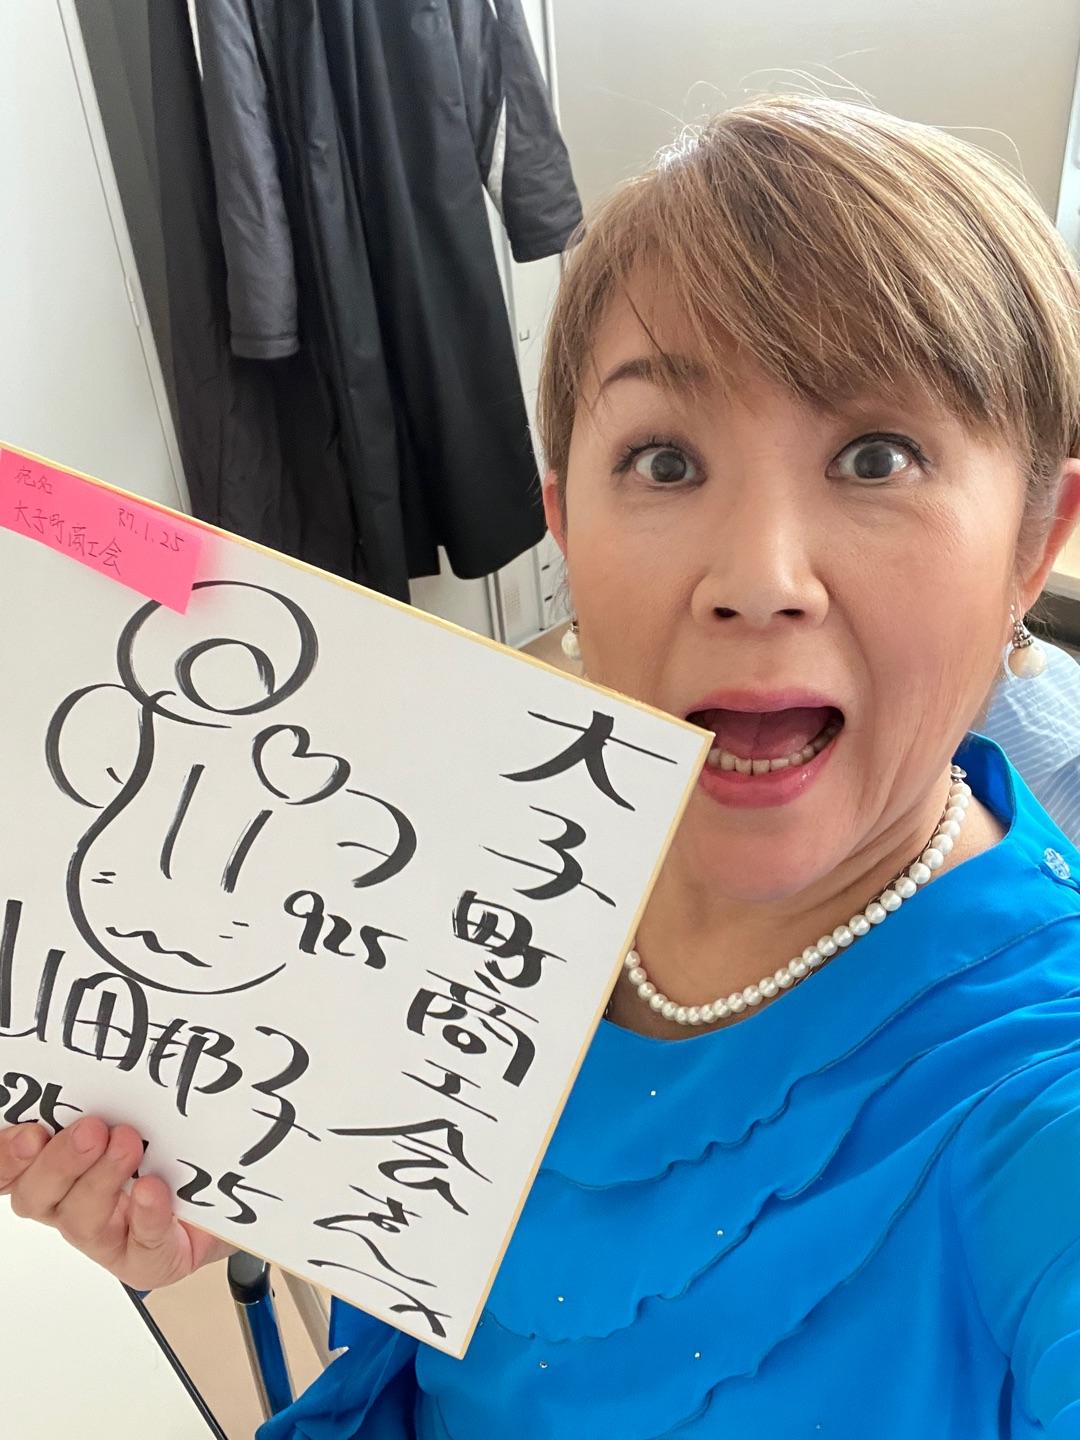 宛名 R7.1.25
大子町商工会
大子町商工会さんへ
925
山田邦子
25